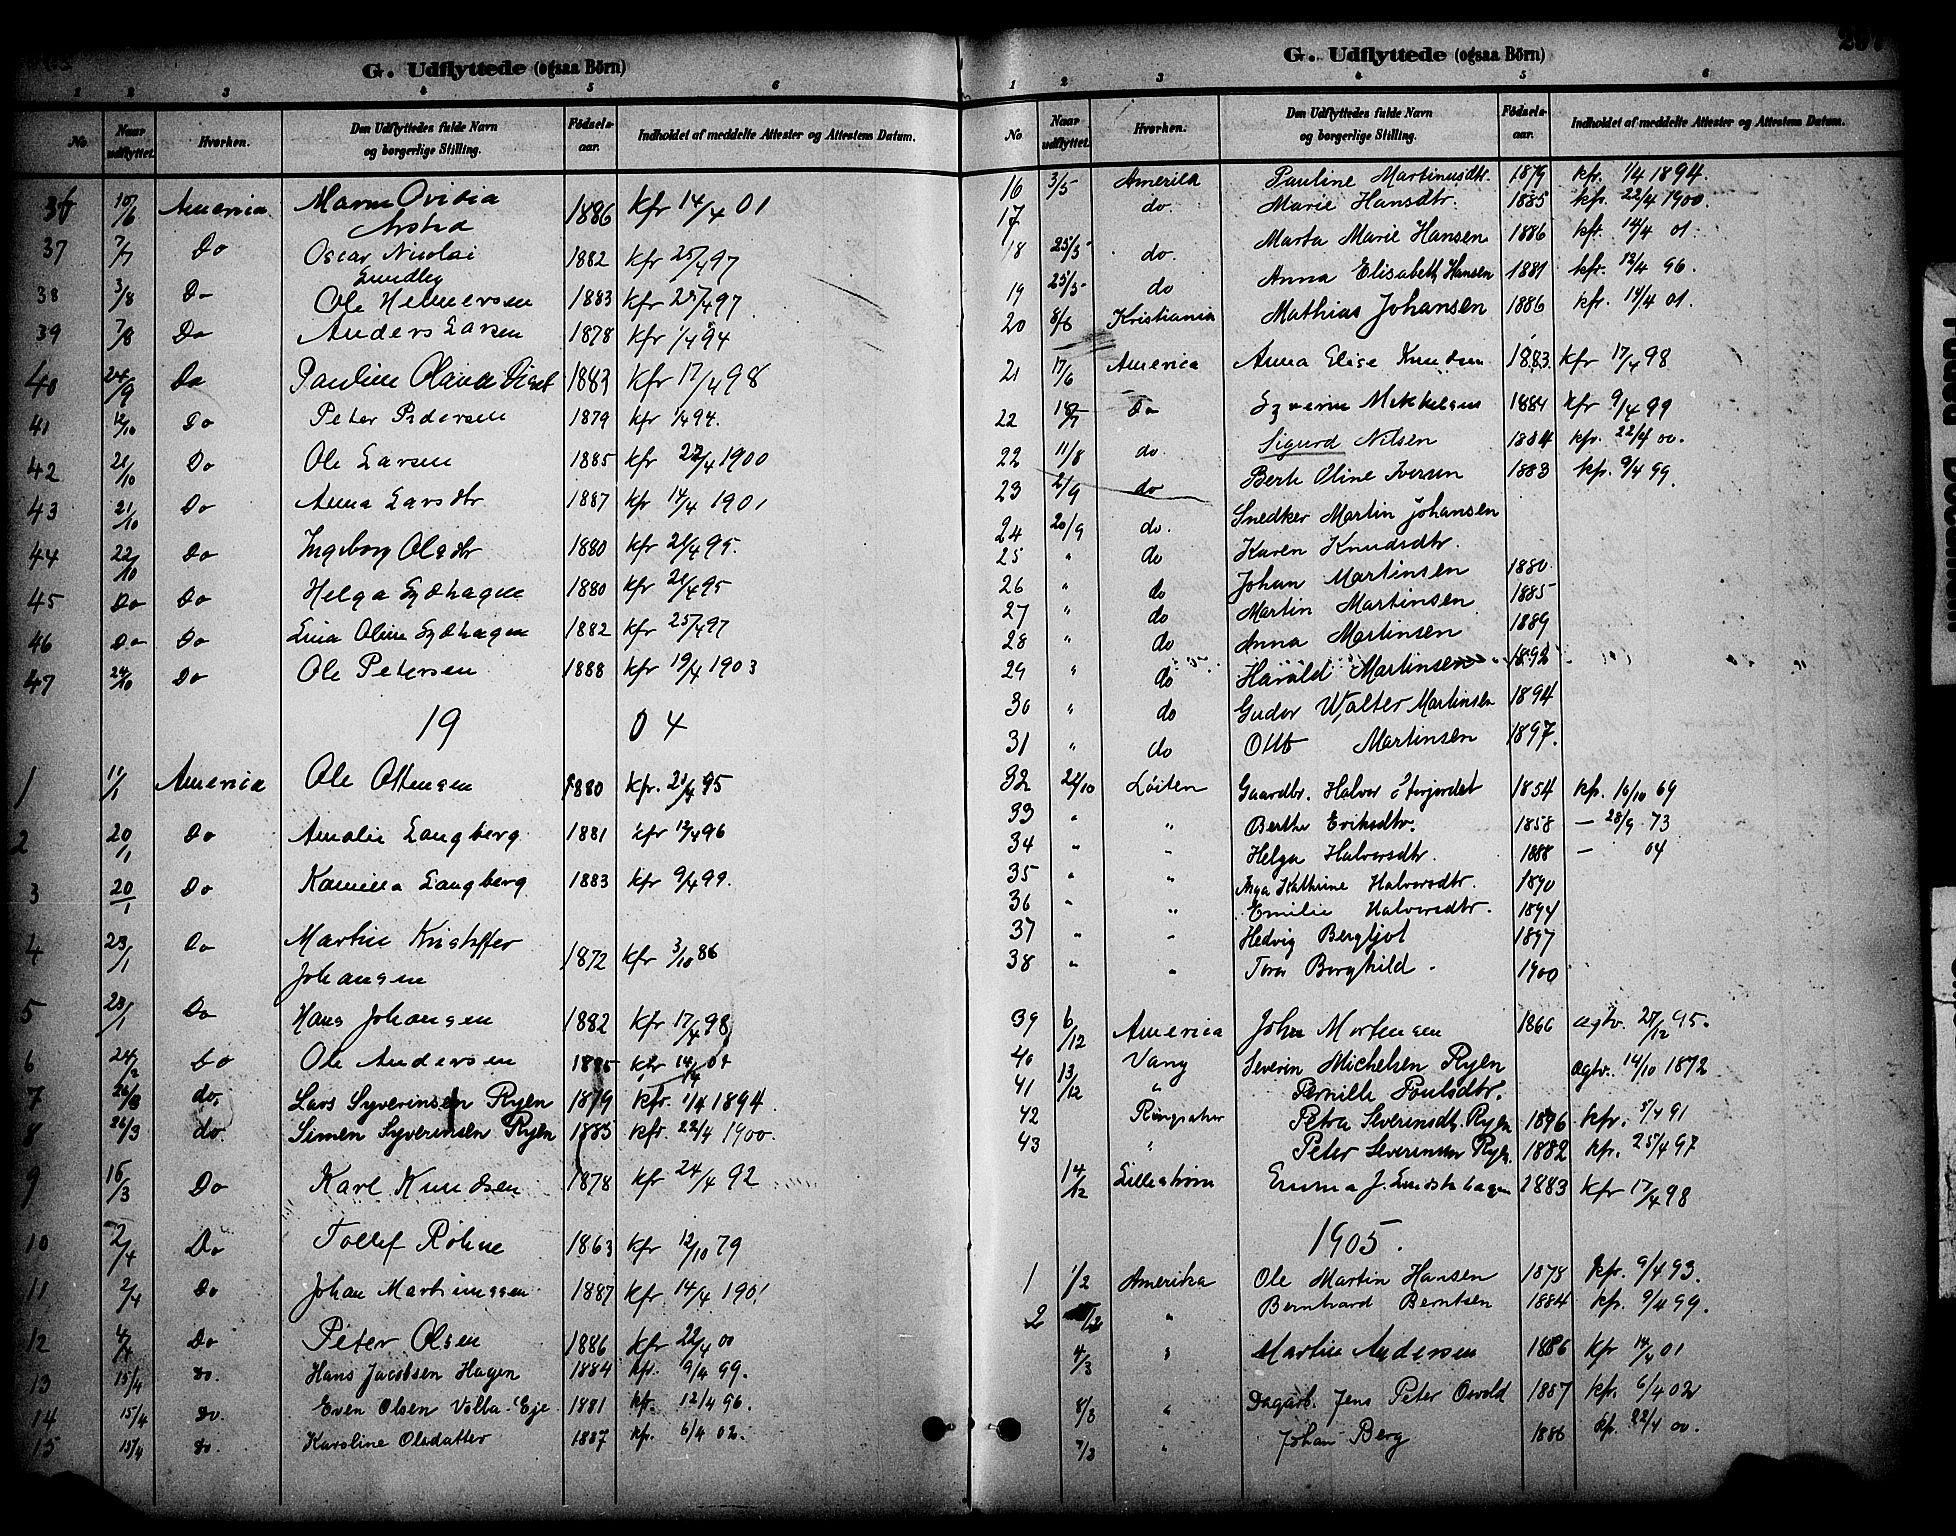 G. Udflyttede (ogsaa Börn)
1 2 3 4 5 6
No. Naar udflyttet. Hvorhen. Den Udflyttedes fulde Navn og borgerlige Stilling. Fødsels-aar. Indholdet af meddelte Attester og Attestens Datum.
36 10/6 America Maren Ovidia 1886 kfr 14/4 01
37 7/7 Do Oscar Nicolai 1882 kfr 25/4 97
Lundby
38 3/8 Do Ole Helmersen 1883 kfr 25/4 97
39 7/8 Do Anders Larsen 1878 kfr 1/4 94
40 24/9 Do Pauline Olava 1883 kfr 17/4 98
41 12/10 Do Peter Pedersen 1879 kfr 1/4 94.
42 21/10 Do Ole Larsen 1885 kfr 22/4 1900
43 21/10 Do Anna Larsdtr 1887 kfr 14/4 1901
44 22/10 Do Ingeborg Olsdtr 1880 kfr 21/4 95.
45 Do Do Helga Lydhagen 1880 kfr 21/4 95
46 Do Do Lina Oline Lydhagen 1882 kfr 25/4 97
47 24/10 Do Ole Petersen 1888 kfr 19/4 1903
19 04
1 11/1 America Ole Ottensen 1880 kfr. 21/4 95
2 20/1 Do Amalie Langberg 1881 kfr 12/4 96
3 20/1 Do Kamilla Langberg 1883 kfr 9/4 99.
4 23/1 Do Martin Kristoffer 1872 kfr 3/10 86
Johansen
5 23/1 Do Hans Johansen 1882 kfr 17/4 98
6 24/2 Do Ole Andersen 1885 kfr 14/4 01
7 26/3 do. Lars Syverinsen Ryen 1879 kfr. 1/4 1894.
8 26/3 do. Simen Syverinsen Ryen 1885 kfr. 22/4 1900.
9 15/3 Do Karl Knudsen 1878 kfr 24/4 92
10 2/4 Do Tollef Röhne 1863 kfr 12/10 79
11 2/4 Do Johan Martinussen 1887 kfr 14/4 1901
12 4/4 Do Peter Olsen 1886 kfr 22/4 00
13 15/4 do. Hans Jacobsen Hagen 1884 kfr. 9/4 99.
14 15/4 do. Even Olsen Volla-Eje 1881 kfr. 12/4 96.
15 15/4 do. Karoline Olsdatter 1887 kfr. 6/4 02.
G. Udflyttede (ogsaa Börn)
1 2 3 4 5 6
No Naar udflyttet. Hvorhen. Den Udflyttedes fulde Navn og borgerlige Stilling. Fødsels-aar. Indholdet af meddelte Attester og Attestens Datum.
16 3/5 Amerika Pauline Martinusdtr. 1879 kfr. 1/4 1894.
17 do. Marie Hansdtr. 1885 kfr. 22/4 1900.
18 25/5 do. Marta Marie Hansen 1886 kfr. 14/4 01.
19 25/5 do Anna Elisabeth Hansen 1881 kfr. 12/4 96.
20 8/6 Kristiania Mathias Johansen 1886 kfr. 14/4 01.
21 17/6 America Anna Elise Knudsen 1883. kfr 17/4 98
22 Do Mikkelsen 1884 kfr 9/4 99
22 11/8 do. Sigurd Nilsen 1884 kfr. 22/4 00.
23 2/9 do Berte Oline Iversen 1883 kfr. 9/4 99.
24 20/9 do. Snedker Martin Johansen
25 " do Karen Knudsdtr.
26 " do Johan Martinsen 1880.
27 " do Martin Martinsen 1885
28 " do Anna Martinsen 1889
29 " do Harald Martinsen 1892
30 " do Gudor Walter Martinsen 1894
31 " do Otto Martinsen 1897.
32 22/10 Löiten Gaardbr. Halvor 1854 kfr. 16/10 69
33 " " Berthe Eriksdtr. 1858 — 28/9 73
34 " " Helga Halvorsdtr. 1888 — 04
35 " " Inga Kathrine Halvorsdtr. 1890
36 " " Emilie Halvorsdtr. 1894
37 " " Hedvig Bergljot 1897
38 " " Tora Borghild. 1900
39 6/12 America John Mortensen 1866 agtv. 27/12 95.
40 13/12 Vang Severin Michelsen Ryen agtv. 14/10 1872.
41 " Pernille Poulsdtr.
42 Ringsaker Petra Severinsdt. Ryen 1876 kfr. 5/4 91
43 " Peter Severinsen Ryen. 1882 kfr. 25/4 97
14/12 Lillestrøm Emma J. 1883 kfr 17/4 98
1905.
1 1/2 Amerika Ole Martin Hansen 1878 kfr. 9/4 93.
2 1/2 " Bernhard Berntsen 1884 kfr. 9/4 99.
4/3 " Martin Andersen 1886 kfr 14/4 01
8/3 " Dagarb. Jens Peter Osvold 1887 kfr. 6/4 02
7/3 " Johan Berg 1886 kfr. 22/4 00.